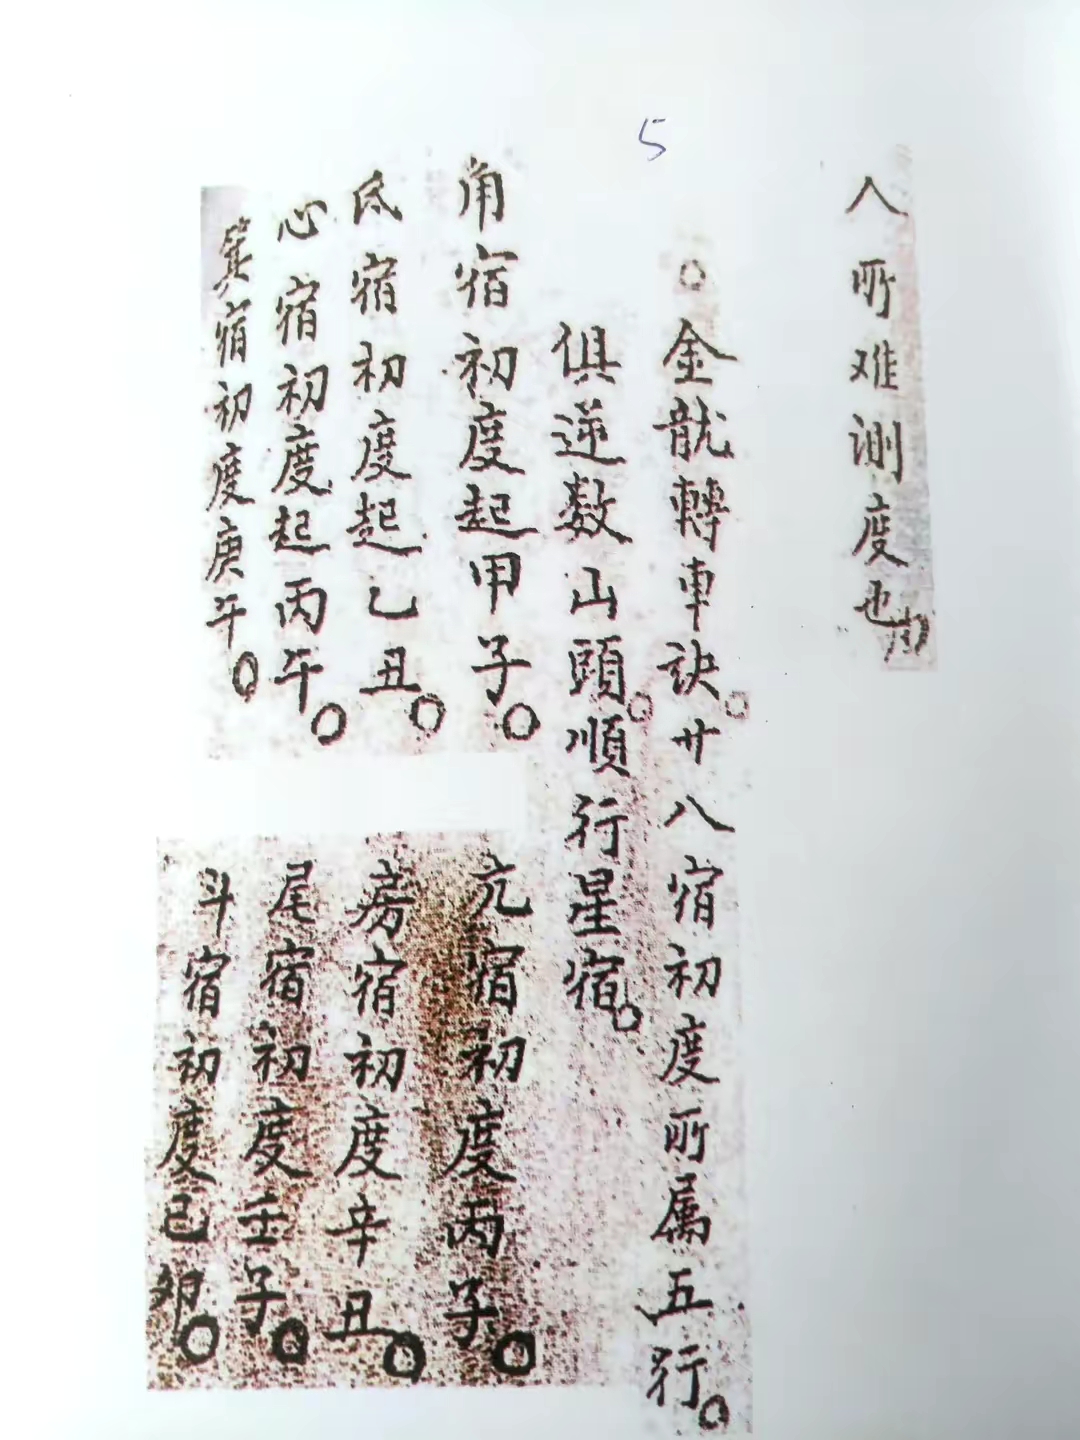 5
人所难測度也
○金龍轉車訣。廿八宿初度所属五行。
俱逆数山頭。順行星宿。
角宿初度起甲子。
亢宿初度丙子。
氐宿初度起乙丑。
房宿初度辛丑。
心宿初度起丙午。
尾宿初度壬子。
箕宿初度庚午。
斗宿初度己